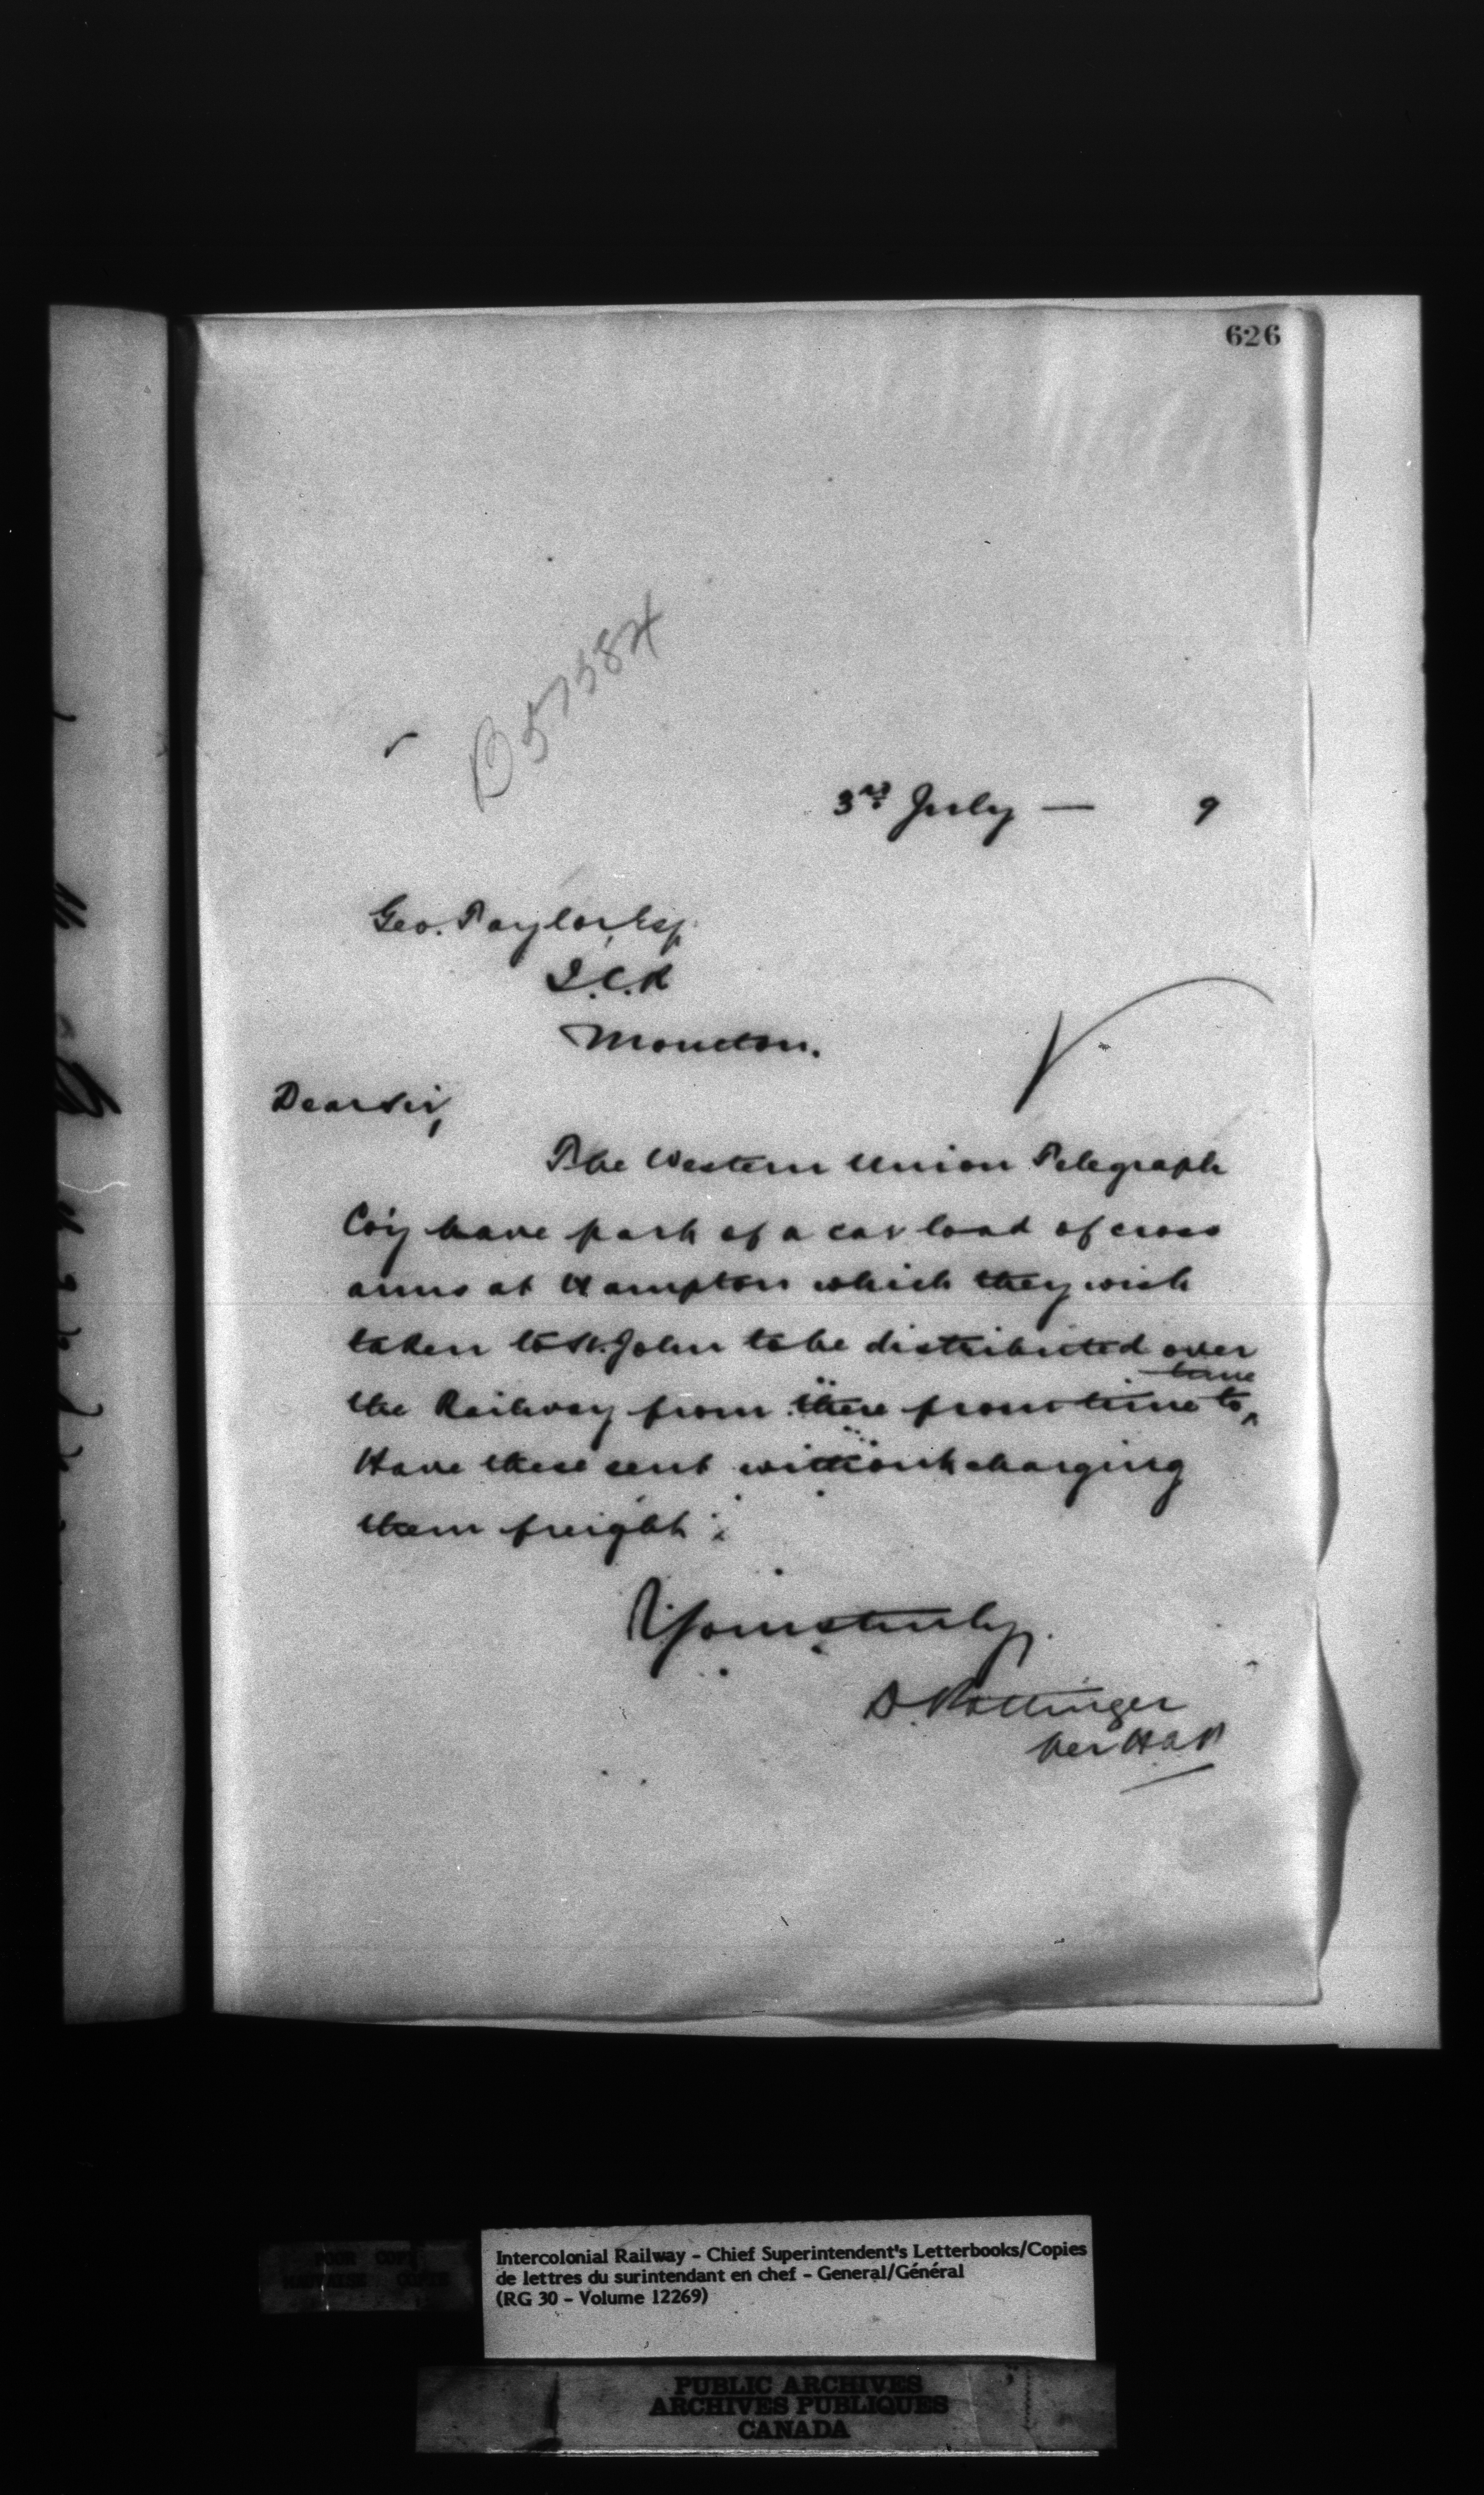 626
B 57584
3rd July — 9
Geo. Taylor, Esq.
I.C.R
Moncton.
Dear Sir,
The Western Union Telegraph
Co'y have part of a car load of cross
arms at Hampton which they wish
taken to St. John to be distributed over
the Railway from there from time to time
Have these sent without charging
them freight.
Yours truly,
D. Pottinger
per
Intercolonial Railway - Chief Superintendent's Letterbooks/Copies
de lettres du surintendant en chef - General/Général
(RG 30 - Volume 12269)
POOR COPY
MAUVAISE COPIE
PUBLIC ARCHIVES
ARCHIVES PUBLIQUES
CANADA